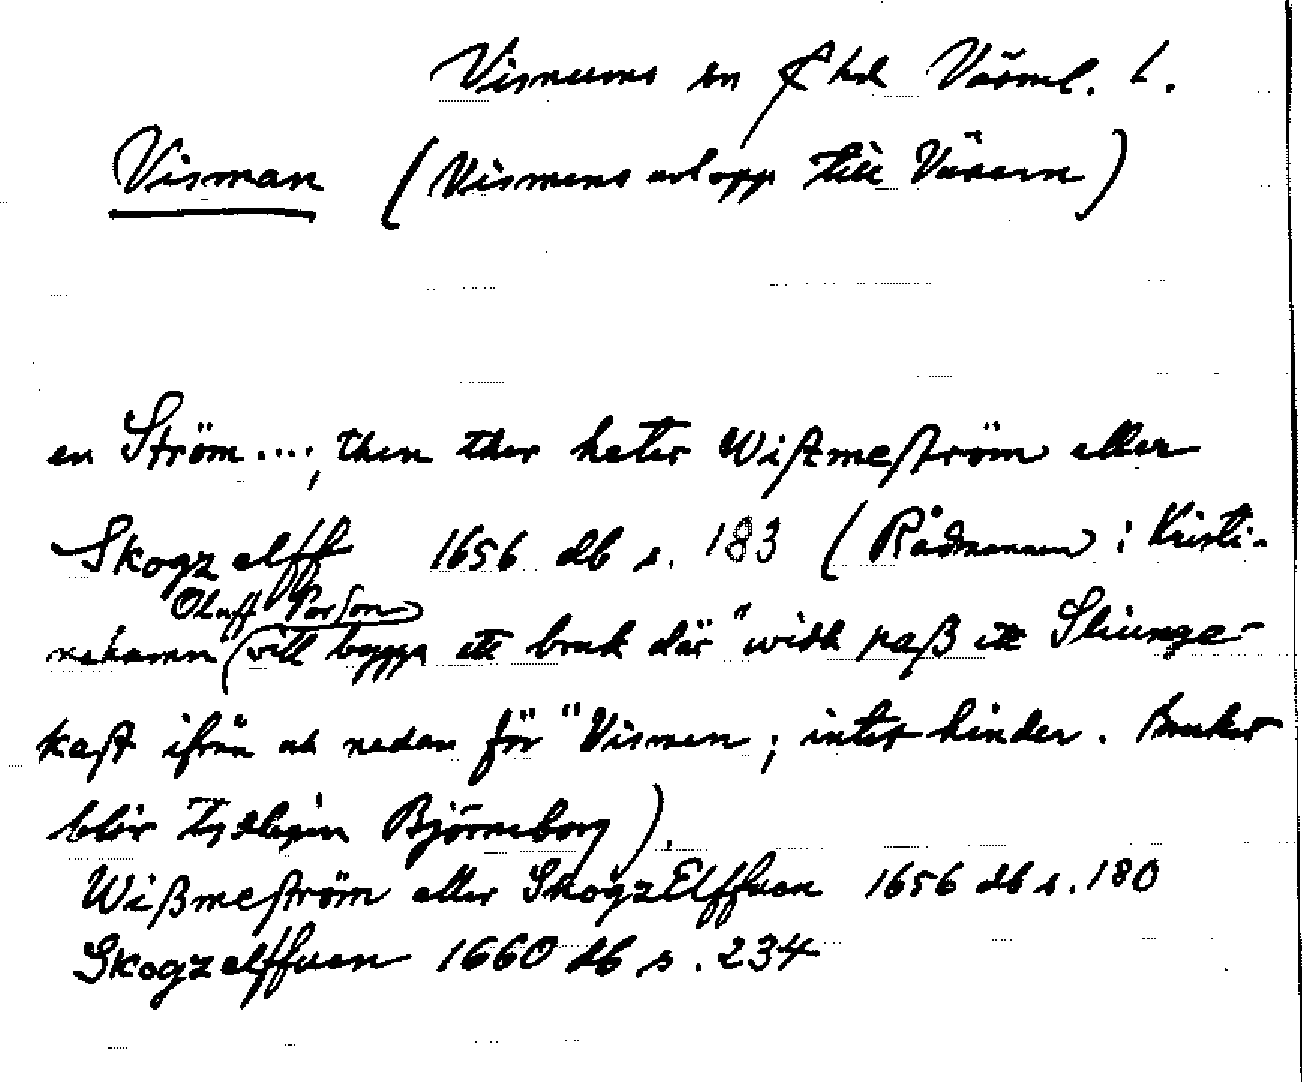 Visnums sn f hd Värml. l.
Visman (Vismens avlopp till Vänern)
en Ström...., then ther heter Wißmeström eller
Skogzelff 1656 db s. 183 (Rådmannen i Kristi-
Oluff Person
nehamn vill bygga ett bruk där "widh paß ett Sliunge-
kast ifrån och nedan för" Vismen; intet hinder. Bruket
blir tydligen Björneborg).
Wißmeström eller SkogzElffuen 1656 db s. 180
Skogzelffuen 1660 db s. 234